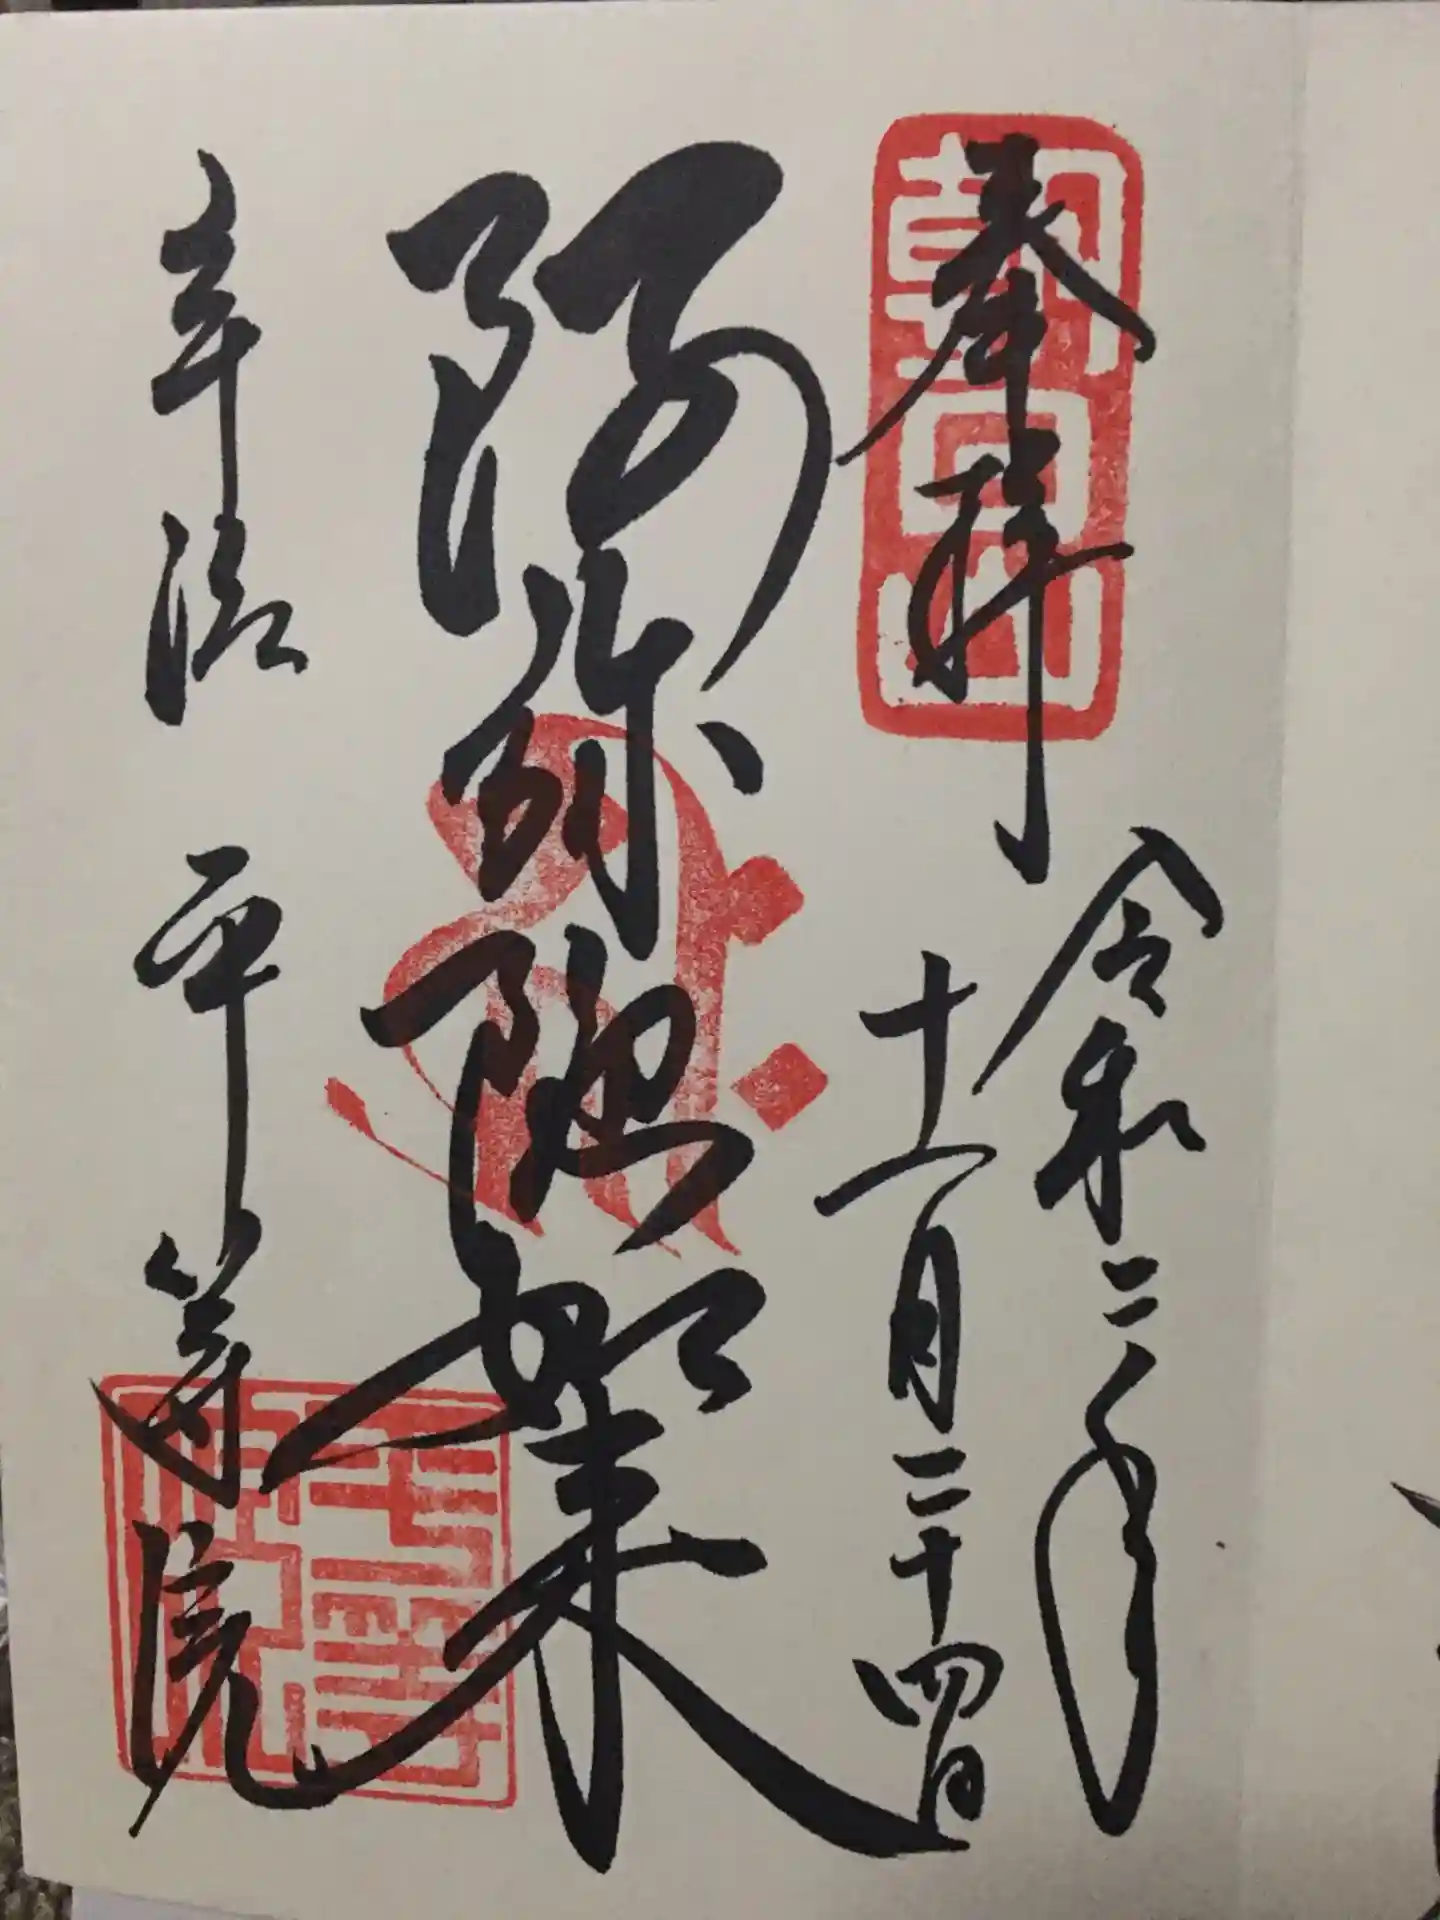 朝日山
奉拝
令和二年
十一月二十四日
阿弥陀如来
宇治 平等院